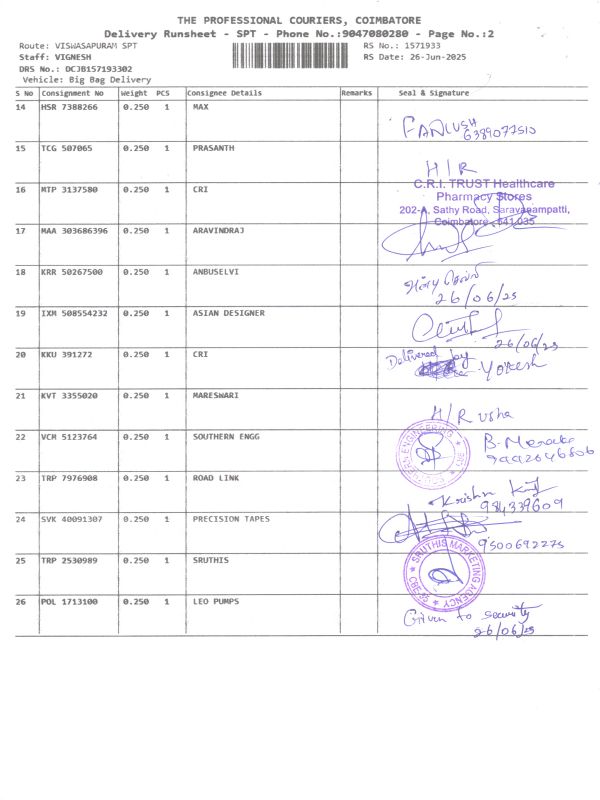 THE PROFESSIONAL COURIERS, COIMBATORE
Delivery Runsheet - SPT - Phone No.:9047080280 - Page No.:2
Route: VISWASAPURAM SPT
RS No.: 1571933
Staff: VIGNESH
RS Date: 26-Jun-2025
DRS No.: DCJB157193302
Vehicle: Big Bag Delivery
S No Consignment No Weight PCS Consignee Details Remarks Seal & Signature
14 HSR 7388266 0.250 1 MAX
6389077510
15 TCG 507065 0.250 1 PRASANTH
H/R
16 MTP 3137580 0.250 1 CRI
C.R.I. TRUST Healthcare
Pharmacy Stores
202-A, Sathy Road, Saravanampatti,
Coimbatore - 641 035
17 MAA 303686396 0.250 1 ARAVINDRAJ
18 KRR 50267500 0.250 1 ANBUSELVI
26/06/25
19 IXM 508554232 0.250 1 ASIAN DESIGNER
26/06/25
20 KKU 391272 0.250 1 CRI
Delivered by
Yokesh
21 KVT 3355020 0.250 1 MARESWARI
H/R usha
22 VCM 5123764 0.250 1 SOUTHERN ENGG
ENGINEERING
B. 
23 TRP 7976908 0.250 1 ROAD LINK
Krishn
984339609
24 SVK 40091307 0.250 1 PRECISION TAPES
9500692275
25 TRP 2530989 0.250 1 SRUTHIS
SRUTHIS MARKETING AGENCY CBE-35
26 POL 1713100 0.250 1 LEO PUMPS
Given to security
26/06/25